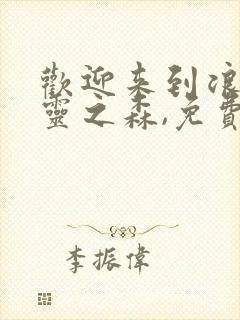 歡迎来到浪
靈之森,免費
李振偉